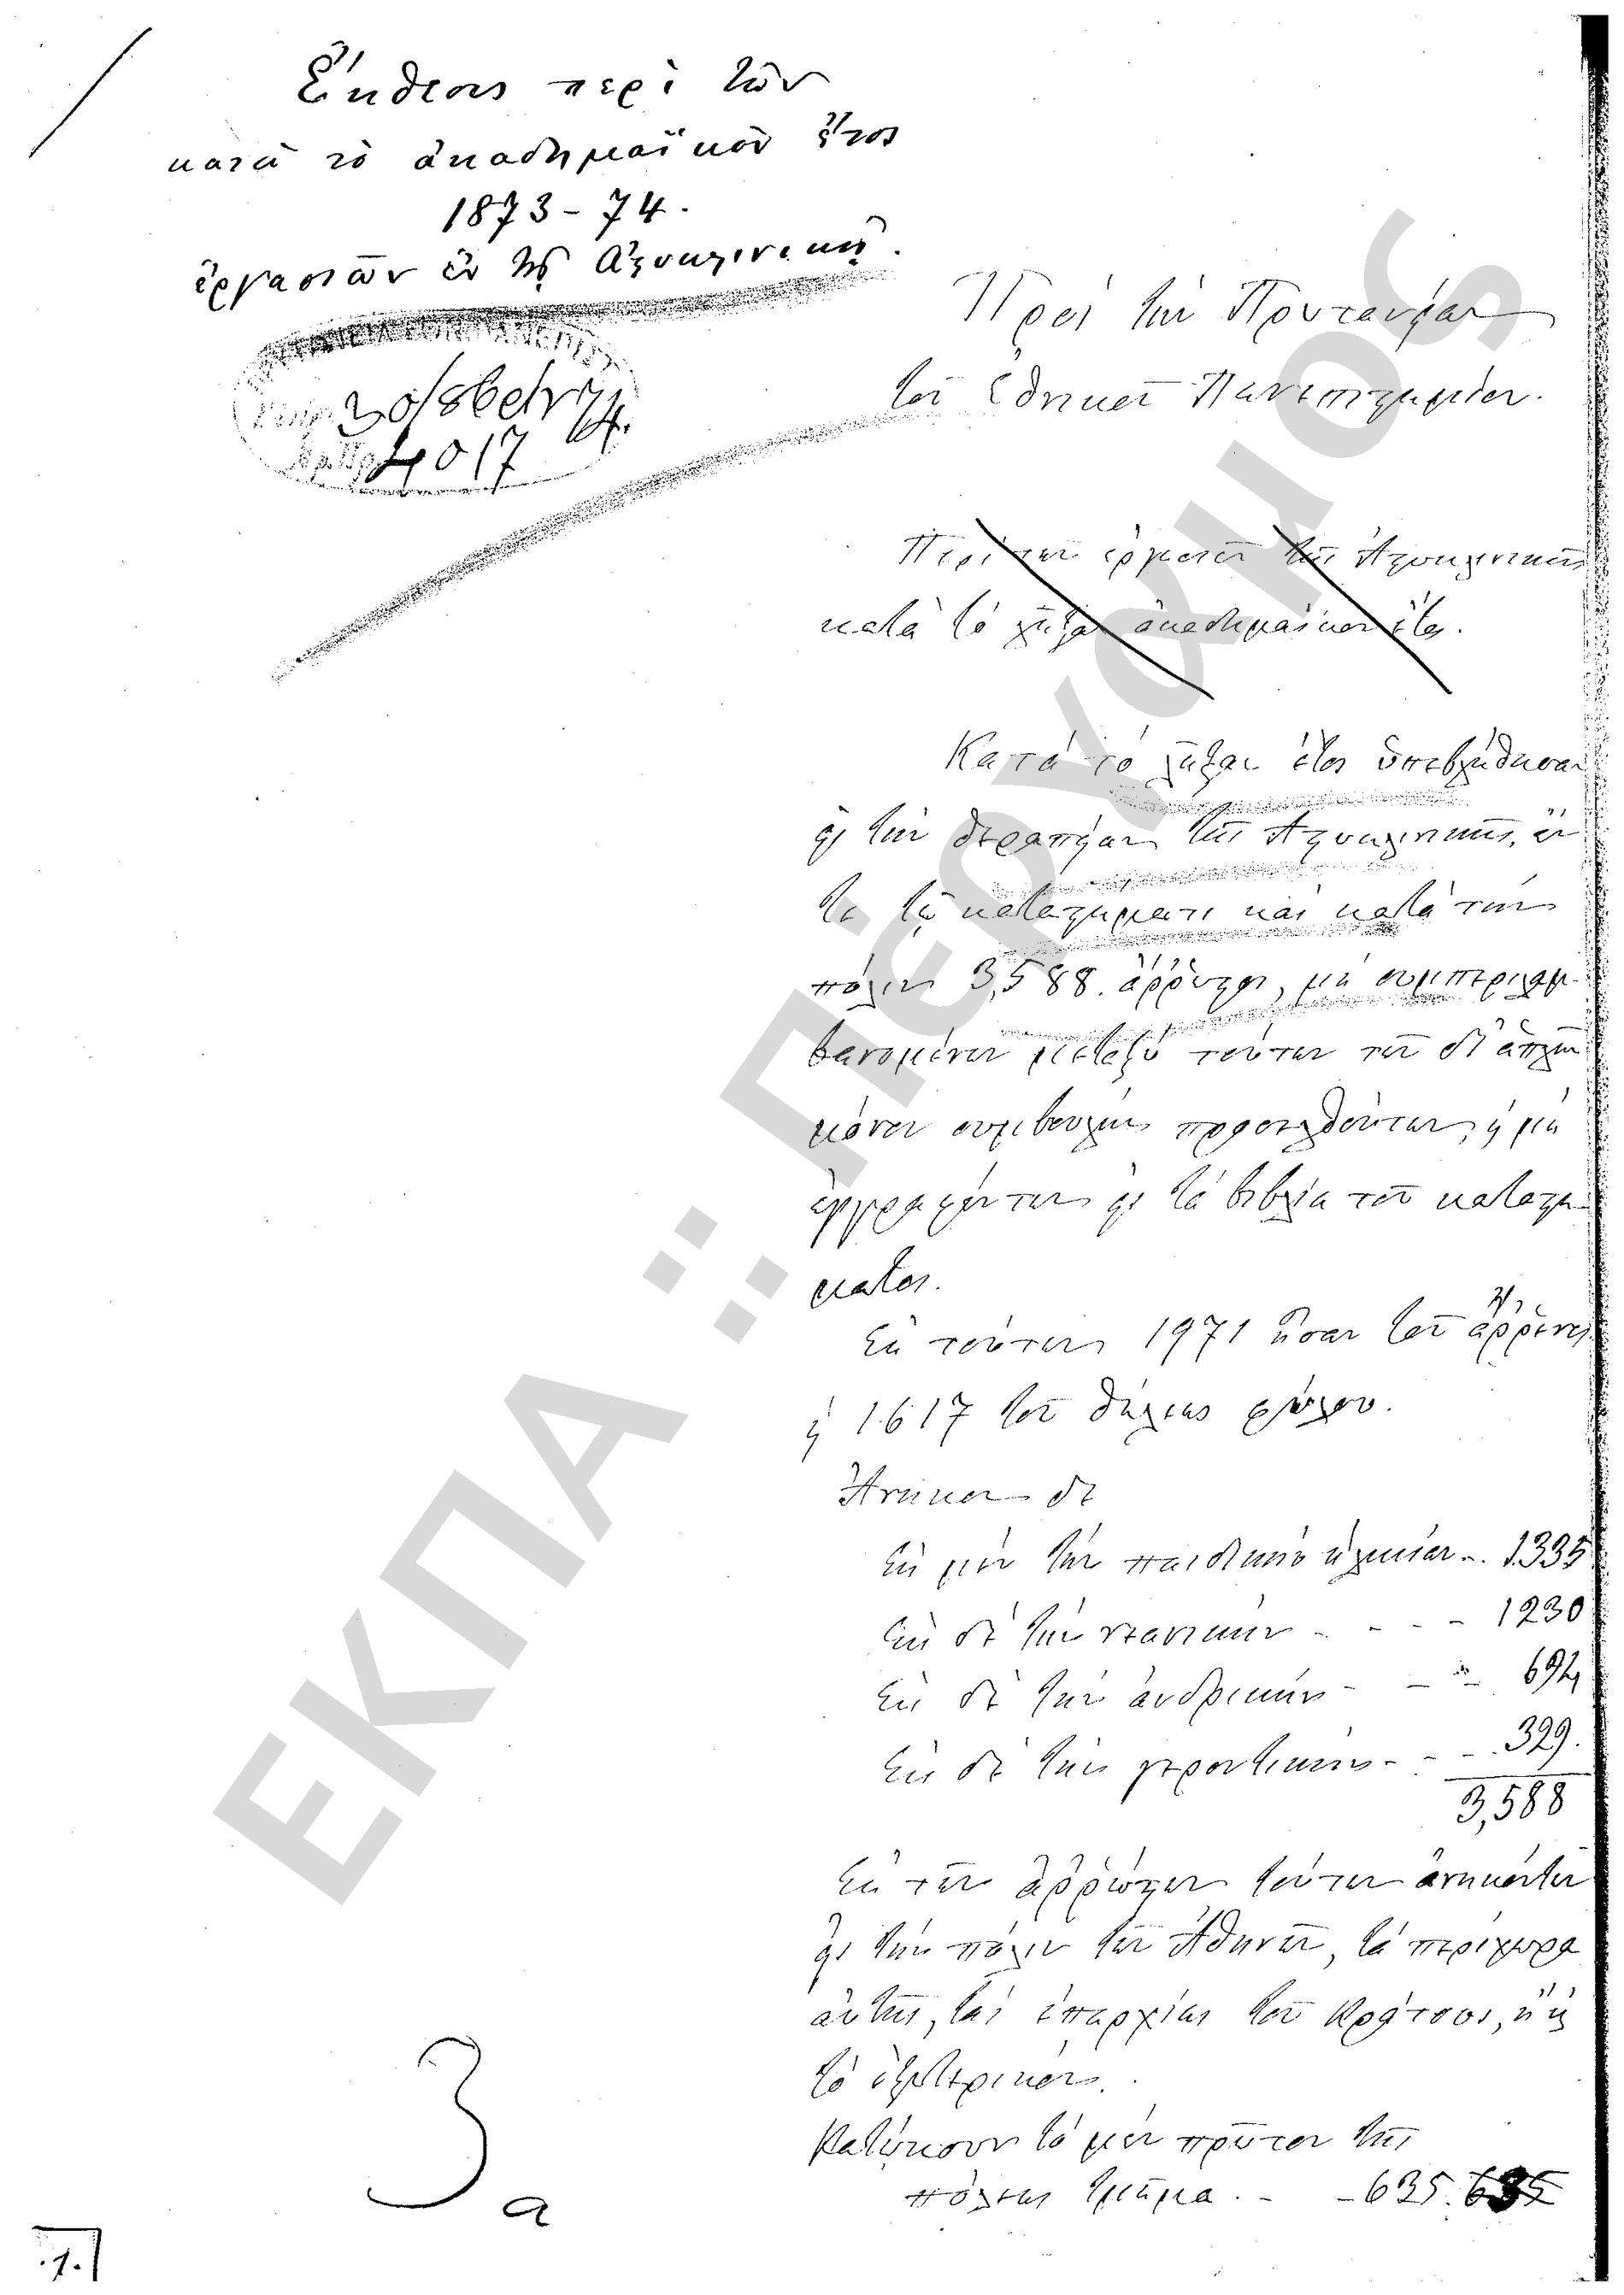 Ἔκθεσις περὶ τῶν
κατὰ τὸ ἀκαδημαϊκὸν ἔτος
1873-74.
ἐργασιῶν ἐν τῇ Ἀστυκλινικῇ.
Πρὸς τὴν Πρυτανείαν
τοῦ Ἐθνικοῦ Πανεπιστημίου.
4017
Περὶ τῶν ἐργασιῶν τῆς Ἀστυκλινικῆς
κατὰ τὸ λῆξαν ἀκαδημαϊκὸν ἔτος.
Κατὰ τὸ λῆξαν ἔτος ὑπεβλήθησαν
εἰς τὴν θεραπείαν τῆς Ἀστυκλινικῆς, ἔν
τε τῷ καταστήματι καὶ κατὰ τὴν
πόλιν 3,588 ἄῤῥωστοι, μὴ συμπεριλαμ-
βανομένων μεταξὺ τούτων τῶν δι' ἁπλῆν
μόνον συμβουλὴν προσελθόντων, ἢ μὴ
ἐγγραφέντων εἰς τὰ βιβλία τοῦ καταστή-
ματος.
Ἐκ τούτων 1971 ἦσαν τοῦ ἄῤῥενος
ἢ 1617 τοῦ θήλεως φύλου.
Ἀνῆκον δὲ
Εἰς μὲν τὴν παιδικὴν ἡλικίαν - 1335
Εἰς δὲ τὴν νεανικὴν - - - - 1230
Εἰς δὲ τὴν ἀνδρικὴν - - - 694
Εἰς δὲ τὴν γεροντικὴν - - - 329.
3,588
Ἐκ τῶν ἀῤῥώστων τούτων ἀνηκόντων
εἰς τὴν πόλιν τῶν Ἀθηνῶν, τὰ περίχωρα
αὐτῆς, τὰς ἐπαρχίας τοῦ Κράτους, ἢ εἰς
τὸ ἐξωτερικὸν.
Κατῴκουν τὸ μὲν πρῶτον τῆς
πόλεως τμῆμα. - - 635. 635
3
a
.1.
ΕΚΠΑ :: Πέργαμος